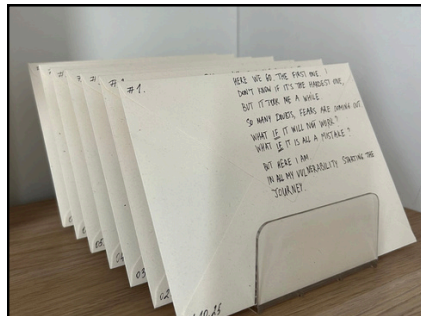 #1.
HERE WE GO. THE FIRST ONE. I
DON'T KNOW IF IT'S THE HARDEST ONE,
BUT IT TOOK ME A WHILE.
SO MANY DOUBTS, FEARS ARE COMING OUT
WHAT IF IT WILL NOT WORK?
WHAT IF IT IS ALL A MISTAKE?
BUT HERE I AM.
IN ALL MY VULNERABILITY STARTING THE
JOURNEY...